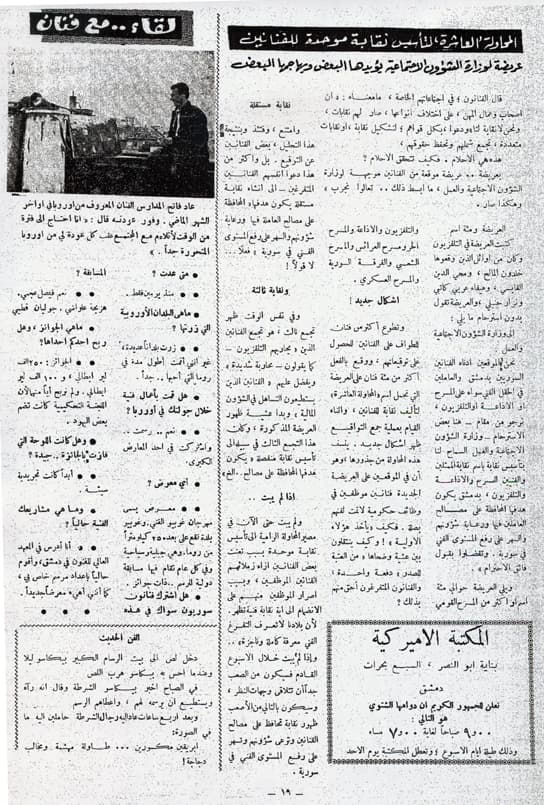 لقاء .. مع فنان
المحاولة "العاشرة" لتأسيس نقابة موحدة للفنانين
عريضة لوزارة الشؤون الاجتماعية يؤيدها البعض ويهاجمها البعض
قال الفنانون ؛ في اجتماعاتهم الخاصة ، مامعناه : ان
اصحاب وعمال المهن ، على اختلاف أنواعها ، صار لهم نقابات ،
ونحن لانقابة لنا « ودعوا ، بكل قواهم ؛ لتشكيل نقابة ، او نقابات
متعددة ، تجمع شملهم وتحفظ حقوقهم ،
هذه هي الاحلام . فكيف تتحقق الاحلام ؟
بعريضة .. عريضة موقعة من الفنانين موجهة لوزارة
الشؤون الاجتماعية والعمل ، ما ابسط ذلك .. تعالوا نجرب ،
وهكذا صار .
العريضة ومئة اسم
كتبت العريضة في التلفزيون
وكان من أوائل الذين وقعوها
خلدون المالح ، ومحي الدين
القابسي ، وهيفاء عربي كاتبي
ونزار
والعريضة تقول
بدون استرحام ما يلي :
الى وزارة الشؤون الاجتماعية
والعمل
نحن الموقعين ادناه الفنانين
السوريين بدمشق والعاملين
في الحقل الفني سواء على المسرح
او الاذاعة او التلفزيون ،
نرجو من مقام - هنا بعض
الاسترحام - وزارة الشؤون
الاجتماعية والعمل السماح لنا
بتأسيس نقابة باسم نقابة الممثلين
والفنيين للمسرح والاذاعة
والتلفزيون ، بدمشق يكون
هدفها المحافظة على مصالح
العاملين فيها ورعاية شؤونهم
والسهر على رفع المستوى الفني
في سورية . وتفضلوا بقبول
فائق الاحترام »
ويلي العريضة حوالي مئة
اسم او اكثر من المسرح القومي
والتلفزيون والاذاعة والمسرح
الحر ومسرح العرائس والمسرح
الشعبي والفرقة السورية
والمسرح العسكري .
اشكال جديد !
وتطوع اكثر من فنان
للطواف على الفنانين للحصول
على توقيعاتهم ، ووقع بالفعل
أكثر من مئة فنان على العريضة
التي تحمل اسم المحاولة العاشرة ،
لتأليف نقابة للفنانين ، واثناء
القيام بعملية جمع التواقيع
ظهر اشكال جديد .. ينسف
هذه المحاولة من جذورها ؛ وهو
أن في الموقعين على العريضة
الجديدة فنانين موظفين في
وظائف حكومية لا تمت للفن
بصلة . فكيف يأخذ هؤلاء
الاولية ؛ ! وكيف ينتقلون
بين عشية وضحاها ؛ من العتبة
للصدر ؛ دفعة واحدة ،
والفنانون المتفرغون أحق منهم
بذلك ؟
نقابة مستقلة
وامتنع ، وقتئذ ونتيجة
هذا التحليل ، بعض الفنانين
عن التوقيع . بل واكثر من
هذا دعوا أنفسهم الفنانين
المتفرغين - الى انشاء نقابة
مستقلة يكون هدفها المحافظة
على مصالح العاملين فيها ورعاية
شؤونهم والسهر على رفع المستوى
الفني في سورية ؛ فعلا ...
لا قولا !
ونقابة ثالثة
وفي نفس الوقت ظهر
تجمع ثالث ؛ هو تجمع الفنانين
الذين
التلفزيون -
كما يقولون -
شديدة ،
ويفضل عليهم ؛ الفنانين الذين
يستطيعون التساهل في الشؤون
المالية ، وبدا عشية ظهور
العريضة المذكورة ؛ وكأن
هذا التجمع الثالث في سبيله الى
تأسيس نقابة منفصلة « يكون
هدفها المحافظة على مصالح .. الخ »
اذا لم يبت ..
ولم يبت حتى الآن في
مصير المحاولة الرامية الى تأسيس
نقابة موحدة بسبب تعنت
بعض الفنانين ازاء زملائهم
الفنانين الموظفين ، وبسبب
اصرار الموظفين منهم على
الانضمام الى اية نقابة فنية تظهر ،
لأن بلادنا لاتعرف التفرغ
الفني معرفة كاملة وناجزة ، ،
واذا لم يبت خلال الاسبوع
القادم فسيكون من الصعب
جدا أن تتلاقى وجهات النظر ،
وسيكون بالتالي من الاصعب
ظهور نقابة تحافظ على مصالح
الفنانين وترعى شؤونهم وتسهر
على رفع المستوى الفني في
سورية .
عاد فاتح المدرس الفنان المعروف من اوروبا في أواخر
الشهر الماضي . وفور عودته قال : « انا احتاج الى فترة
من الوقت لأتلاءم مع المجتمع عقب كل عودة لي من اوروبا
المتحررة جداً » .
● متى عدت ؟
● ● منذ يومين فقط ..
● ماهي البلدان الأوروبية
التي زرتها ؟
● ● زرت بلدانا عديدة ،
غير أنني أقمت أطول مدة في
روما التي أحبها .. جدا .
● هل قمت بأعمال فنية
خلال جولتك في أوروبا ؟
● ● نعم .. رسمت ..
واشتركت في احد المعارض
الكبرى .
● أي معرض ؟
● ● معرض يسمى
مهرجان غوبيو الفني . وغوبيو
بلدة تقع على بعد ٢٥٠ كيلومتراً
من روما ، وهي جبلية وسياحية
وفي كل عام تقام فيها مسابقة
دولية للرسم .. ذات جوائز .
● هل اشترك فنانون
سوريون سواك في هذه
المسابقة ؟
● ● نعم فيصل عجمي .
خزيمة علواني . جوليان قطيني
● ماهي الجوائز ، وهل
ربح احدكم احداها ؟
● ● الجوائز : ٢٥٠ الف
لير ايطالي ، و ١٠٠ الف لير
ايطالي . ولم نربح أياً منها لأن
اللجنة التحكيمية كانت تضم
بعض اليهود .
● وهل كانت اللوحة التي
فازت بالجائزة .. جيدة ؟
● ● أبدا كانت تجريدية
سيئة .
● وما هي مشاريعك
الفنية حاليا ؟
● ● أنا أدرس في المعهد
العالي للفنون في دمشق ، وأقوم
حاليا بإعداد مرسم خاص بي ،
كما أنني أهيىء معرضاً جديداً .
الفن الحديث
دخل لص الى بيت الرسام الكبير بيكاسو ليلا
وعندما احس به بيكاسو هرب اللص .
في الصباح اخبر بيكاسو الشرطة وقال انه رآه
ويستطيع أن يرسمه لهم ، واعطاهم الرسم
وبعد اربع ساعات عاد اليه رجال الشرطة حاملين اليه ما
في الصورة :
ابريقين مكسورين ... طاولة مهشمة ومخالب
دجاجة !
المكتبة الاميركية
بناية ابو النصر ، السبع بحرات
دمشق
تعلن للجمهور الكريم ان دوامها الشتوي
هو التالي :
٩٫٠٠ صباحاً لغاية ٧٫٠٠ مساء
وذلك طيلة ايام الاسبوع ؛ وتعطل المكتبة يوم الاحد
- ١٩ -